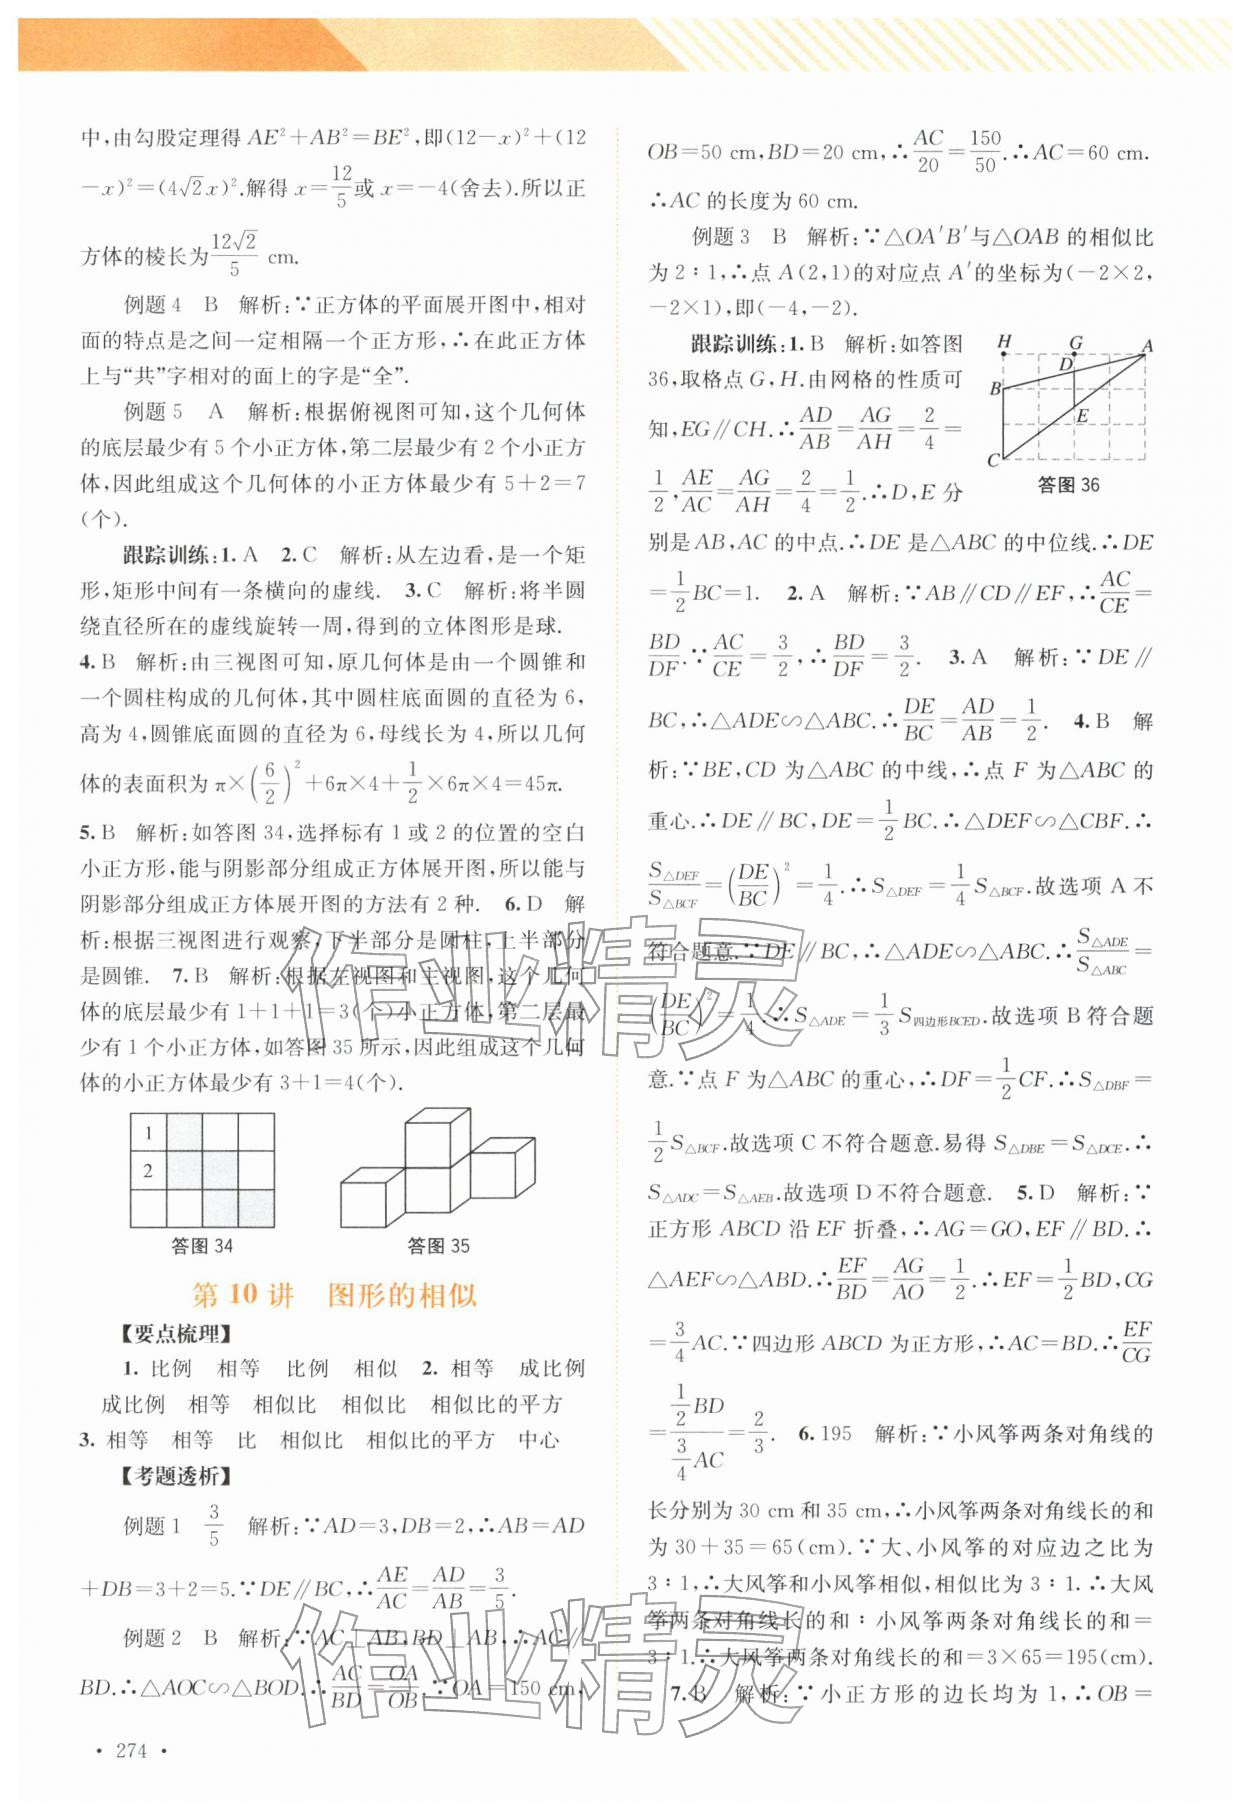 中,由勾股定理得 AE²+AB²=BE²,即(12-x)²+(12
-x)²=(4√2x)².解得 x=12/5或 x=-4(舍去).所以正
方体的棱长为12√2/5 cm.
例题4 B 解析:∵正方体的平面展开图中,相对
面的特点是之间一定相隔一个正方形,∴在此正方体
上与“共”字相对的面上的字是“全”.
例题5 A 解析:根据俯视图可知,这个几何体
的底层最少有 5 个小正方体,第二层最少有 2 个小正方
体,因此组成这个几何体的小正方体最少有 5+2=7
(个).
跟踪训练:1. A 2. C 解析:从左边看,是一个矩
形,矩形中间有一条横向的虚线. 3. C 解析:将半圆
绕直径所在的虚线旋转一周,得到的立体图形是球.
4. B 解析:由三视图可知,原几何体是由一个圆锥和
一个圆柱构成的几何体,其中圆柱底面圆的直径为 6,
高为 4,圆锥底面圆的直径为 6,母线长为 4,所以几何
体的表面积为 π×(6/2)²+6π×4+1/2×6π×4=45π.
5. B 解析:如答图 34,选择标有 1 或 2 的位置的空白
小正方形,能与阴影部分组成正方体展开图,所以能与
阴影部分组成正方体展开图的方法有 2 种. 6. D 解
析:根据三视图进行观察,下半部分是圆柱,上半部分
是圆锥. 7. B 解析:根据左视图和主视图,这个几何
体的底层最少有 1+1+1=3(个)小正方体,第二层最
少有 1 个小正方体,如答图 35 所示,因此组成这个几何
体的小正方体最少有 3+1=4(个).
1
2
答图 34 答图 35
第 10 讲 图形的相似
【要点梳理】
1. 比例 相等 比例 相似 2. 相等 成比例
成比例 相等 相似比 相似比 相似比的平方
3. 相等 相等 比 相似比 相似比的平方 中心
【考题透析】
例题1 3/5 解析:∵AD=3,DB=2,∴AB=AD
+DB=3+2=5.∵DE∥BC,∴AE/AC=AD/AB=3/5.
例题2 B 解析:∵AC⊥AB,BD⊥AB,∴AC∥
BD.∴△AOC∽△BOD.∴AC/BD=OA/OB.∵OA=150 cm,
· 274 ·
OB=50 cm,BD=20 cm,∴AC/20=150/50.∴AC=60 cm.
∴AC 的长度为 60 cm.
例题3 B 解析:∵△OA′B′与△OAB 的相似比
为 2∶1,∴点 A(2,1)的对应点 A′的坐标为(-2×2,
-2×1),即(-4,-2).
跟踪训练:1. B 解析:如答图
36,取格点 G,H.由网格的性质可
知,EG∥CH.∴AD/AB=AG/AH=2/4=
1/2,AE/AC=AG/AH=2/4=1/2.∴D,E 分
H G A
D
B
E
C
答图 36
别是 AB,AC 的中点.∴DE 是△ABC 的中位线.∴DE
=1/2BC=1. 2. A 解析:∵AB∥CD∥EF,∴AC/CE=
BD/DF.∵AC/CE=3/2,∴BD/DF=3/2. 3. A 解析:∵DE∥
BC,∴△ADE∽△ABC.∴DE/BC=AD/AB=1/2. 4. B 解
析:∵BE,CD 为△ABC 的中线,∴点 F 为△ABC 的
重心.∴DE∥BC,DE=1/2BC.∴△DEF∽△CBF.∴
S△DEF/S△BCF=(DE/BC)²=1/4.∴S△DEF=1/4S△BCF.故选项 A 不
符合题意.∵DE∥BC,∴△ADE∽△ABC.∴S△ADE/S△ABC=
(DE/BC)²=1/4.∴S△ADE=1/3S四边形BCED.故选项 B 符合题
意.∵点 F 为△ABC 的重心,∴DF=1/2CF.∴S△DBF=
1/2S△BCF.故选项 C 不符合题意.易得 S△DBE=S△DCE.∴
S△ADC=S△AEB.故选项 D 不符合题意. 5. D 解析:∵
正方形 ABCD 沿 EF 折叠,∴AG=GO,EF∥BD.∴
△AEF∽△ABD.∴EF/BD=AG/AO=1/2.∴EF=1/2BD,CG
=3/4AC.∵四边形 ABCD 为正方形,∴AC=BD.∴EF/CG
=(1/2BD)/(3/4AC)=2/3. 6. 195 解析:∵小风筝两条对角线的
长分别为 30 cm 和 35 cm,∴小风筝两条对角线长的和
为 30+35=65(cm).∵大、小风筝的对应边之比为
3∶1,∴大风筝和小风筝相似,相似比为 3∶1.∴大风
筝两条对角线长的和∶小风筝两条对角线长的和=
3∶1.∴大风筝两条对角线长的和=3×65=195(cm).
7. B 解析:∵小正方形的边长均为 1,∴OB=
作业精灵
作业精灵